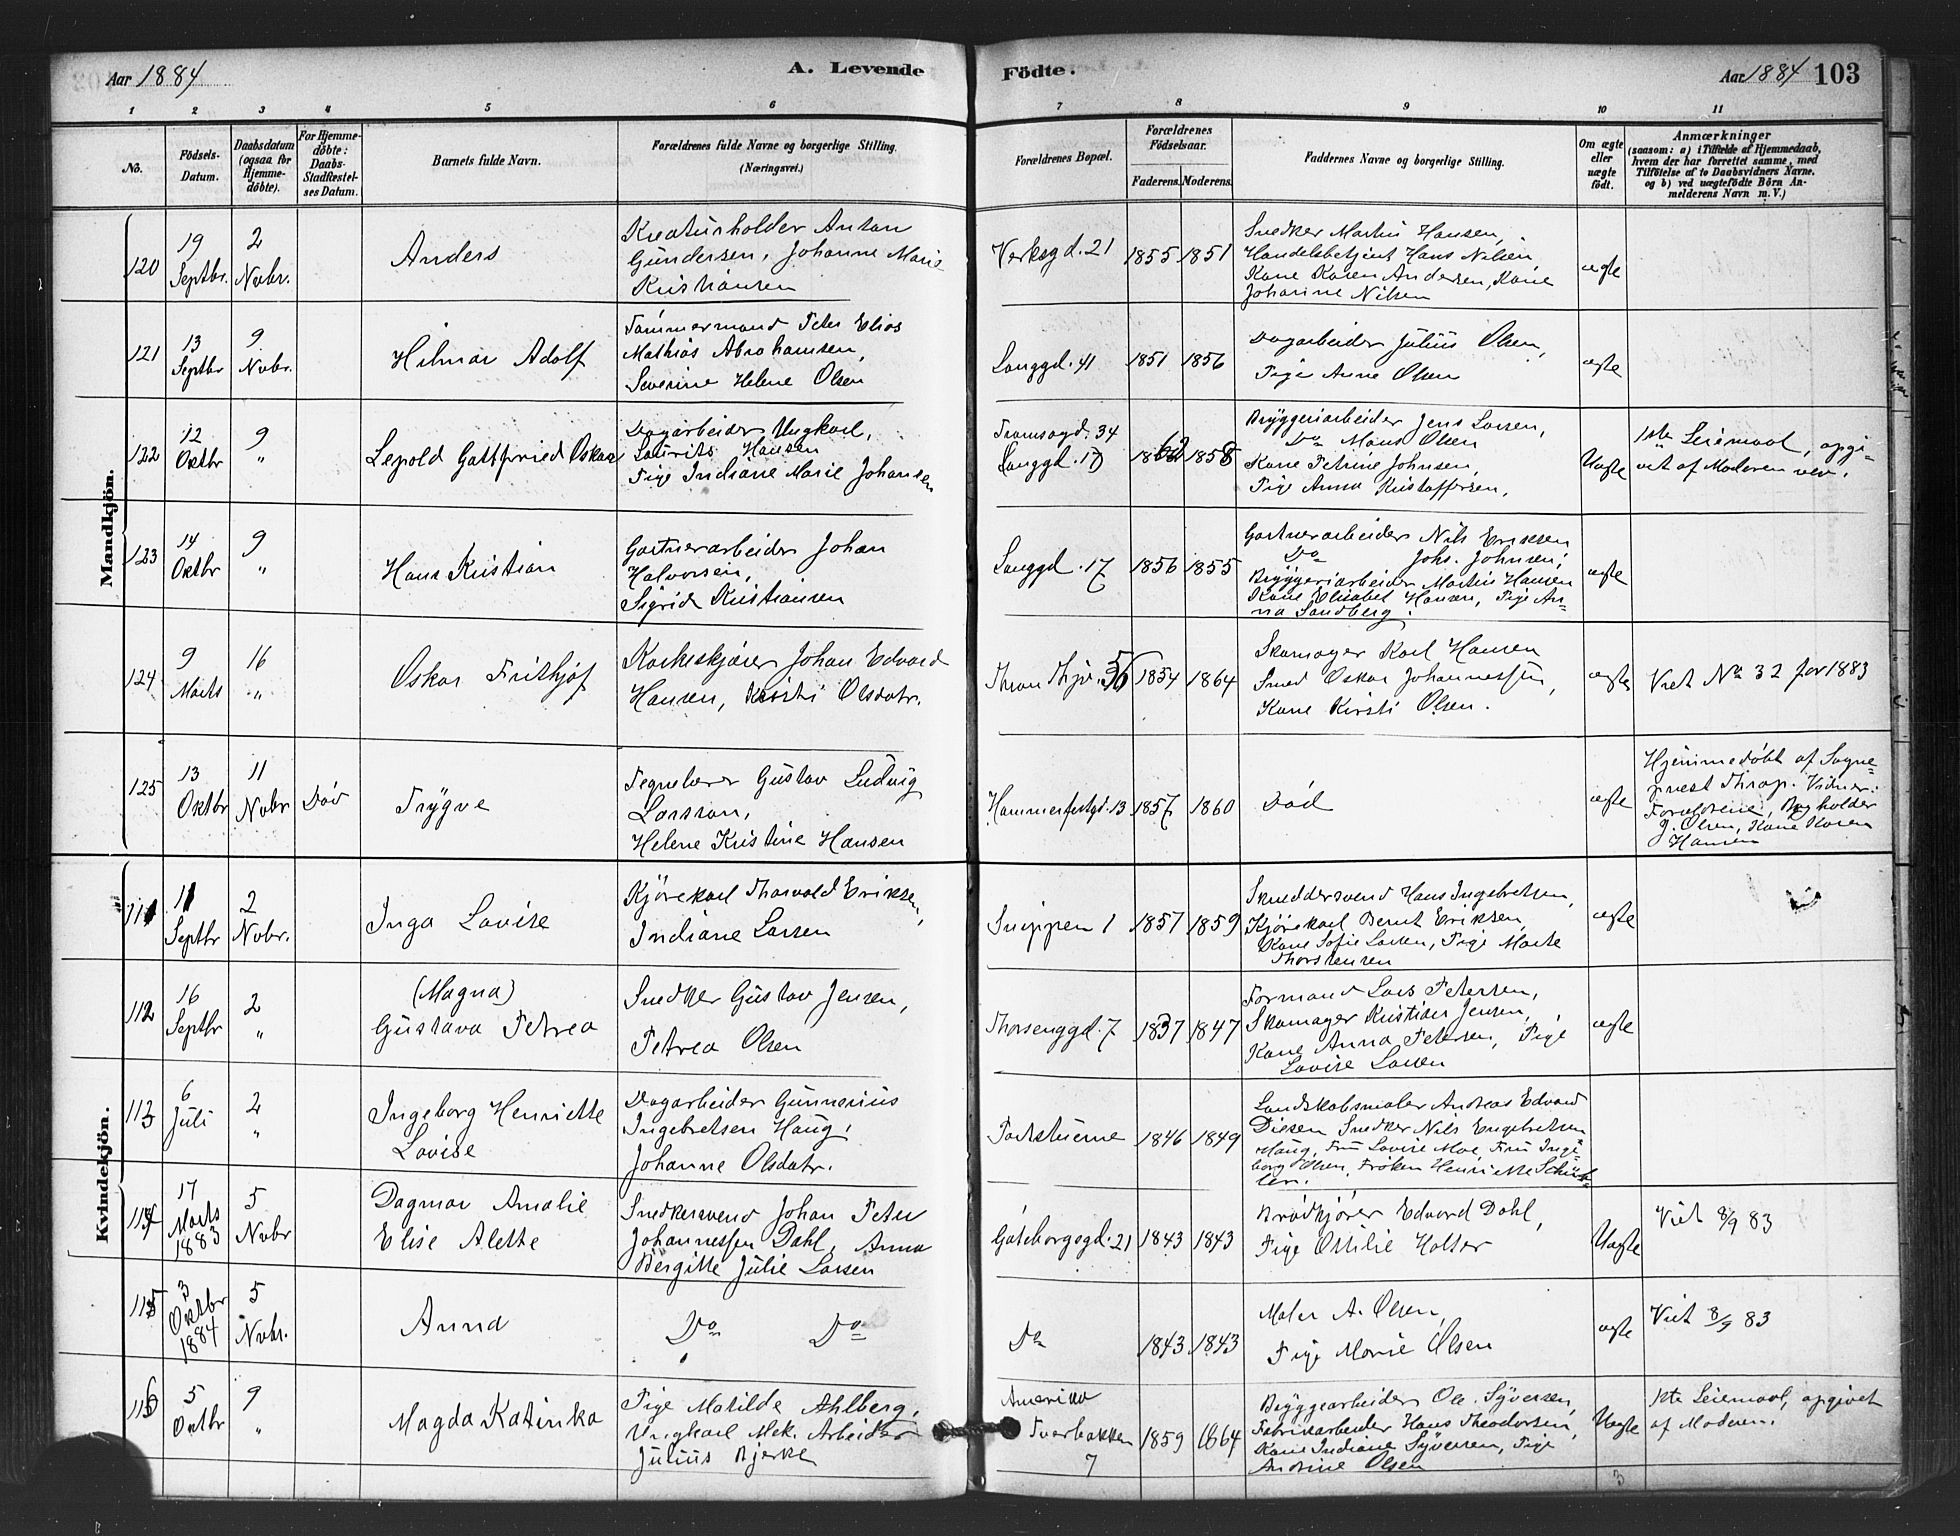 Aar 1884
A. Levende
Födte.
Aar 1884 103
1 2 3 4 5 6 7 8 9 10 11
No.
Födsels-
Datum.
Daabsdatum
(ogsaa for
Hjemme-
döbte).
For Hjemme-
döbte:
Daabs-
Stadfæstel-
ses Datum.
Barnets fulde Navn.
Forældrenes fulde Navne og borgerlige Stilling.
(Næringsvei.)
Forældrenes Bopæl.
Forældrenes
Födselsaar.
Faderens. Moderens.
Faddernes Navne og borgerlige Stilling.
Om ægte
eller
uægte
födt.
Anmærkninger
(saasom: a) i Tilfælde af Hjemmedaab,
hvem der har forrettet samme, med
Tilföielse af to Daabsvidners Navne.
og b) ved uægtefödte Börn An-
melderens Navn m. V.)
Mandkjön.
120
19
Septbr.
2
Novbr.
Anders
Kreaturholder Anton
Gundersen, Johanne Marie
Kristiansen
Verksgd. 21
1855 1851
Snedker Martin Hansen,
Handelsbetjent Hans Nilsen
Kone Karen Andersen, Kone
Johanne Nilsen
ægte
121
13
Septbr
9
Novbr.
Hilmar Adolf
Tömmermand Peter Elias
Mathias Abrahamsen,
Severine Helene Olsen
Langgd. 41
1851 1856
Dagarbeider Julius Olsen,
Pige Anne Olsen
ægte
122
12
Oktbr
9
"
Lepold Gottfried Oskar
Dagarbeider Ungkarl,
Laurits Hansen
Pige Indiane Marie Johansen
Tromsøgd. 34
Langgd. 17
1862 1858
Bryggeriarbeider Jens Larsen,
Do Måns Olsen
Kone Petrine Johnsen,
Pige Anna Kristoffersen,
Uægte
1ste Leiemaal, opgi-
vet af Moderen
123
14
Oktbr
9
"
Hans Kristian
Gartnerarbeider Johan
Halvorsen,
Sigrid Kristiansen
Langgd. 17
1856 1855
Gartnerarbeider Nils Eriksen
Do Johs. Johnsen,
Bryggeriarbeider Martin Hansen
Kone Elisabet Hansen, Pige An-
na Sandberg.
ægte
124
9
Marts
16
"
Oskar Frithjof
Karkeskjærer Johan Edvard
Hansen, Kirsti Olsdatr.
56
1854 1864
Skomager Karl Hansen
Smed Oskar Johannessen,
Kone Kirsti Olsen.
ægte
Viet No 32 for 1883
125
13
Oktbr
11
Novbr
Död
Trygve
Tegnelærer Gustav Ludvig
Larsson,
Helene Kristine Hansen
Hammerfestgd. 13
1857 1860
Död
ægte
Hjemmedöbt af Sogne-
prest Thrap. Vidner:
Forældrene, Bogholder
J. Olsen, Kone Karen
Hansen
Kvindekjön.
111
11
Septbr
2
Novbr.
Inga Lovise
Kjørekarl Thorvald Eriksen,
Indiane Larsen
Snippen 1
1857 1859
Skræddersvend Hans Ingebretsen,
Kjørekarl Bernt Eriksen,
Kone Sofie Larsen, Pige Marte
Thorstensen
ægte
112
16
Septbr
2
"
(Magna)
Gustava Petrea
Snedker Gustav Jensen,
Petrea Olsen
Thorsenggd. 7
1837 1847
Formand Lars Petersen,
Skomager Kristian Jensen,
Kone Anna Petersen, Pige
Lovise Larsen
ægte
113
6
Juli
2
"
Ingeborg Henriette
Lovise
Dagarbeider Gunnerius
Ingebretsen Haug,
Johanne Olsdatr.
1846 1849
Landskabsmaler Andreas Edvard
Disen Snedker Nils Engebretsen
Haug, Fru Lovise Moe, Fru Inge-
borg Olsen, Frøken Henriette
114
17
Marts
1883
5
Novbr
Dagmar Amalie
Elise Alette
Snedkersvend Johan Peter
Johannessen Dahl, Anna
Bergitte Julie Larsen
Gøteborgsgd. 21
1843 1843
Brødkjører Edvard Dahl,
Pige Ottilie Holter
Uægte
Viet 8/9 83
115
3
Oktbr
1884
5
Novbr.
Anna
Do Do
Do
1843 1843
Maler A. Olsen,
Pige Marie Olsen
ægte
Viet 8/9 83
116
5
Oktbr
9
"
Magda Katinka
Pige Matilde Ahlberg,
Ungkarl Mek. Arbeider
Julius Bjerke
Amerika
Tverbakken
7
1859 1864
Bryggearbeider Ole Syversen,
Fabrikarbeider Hans Theodorsen,
Kone Indiane Syversen, Pige
Andrine Olsen
Uægte
1ste Leiemaal, opgivet
af Moderen.
3